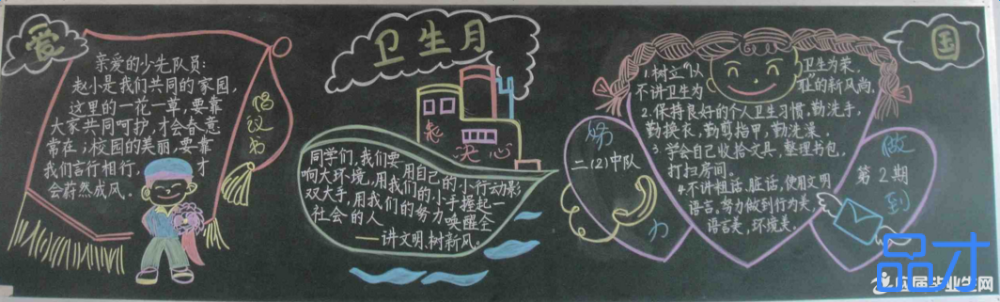 爱
卫生月
国
亲爱的少先队员:
赵小是我们共同的家园,
这里的一花一草,要靠
大家共同呵护,才会春意
常在;校园的美丽,要靠
我们言行相行,才
会蔚然成风。
倡议书
表
决心
同学们,我们要用自己的小行动影
响大环境,用我们的小手握起一
双大手,用我们的努力唤醒全
社会的人
——讲文明,树新风。
1.树立“以卫生为荣,
不讲卫生为耻”的新风尚。
2.保持良好的个人卫生习惯,勤洗手,
勤换衣,勤剪指甲,勤洗澡。
3.学会自己收拾文具,整理书包,
打扫房间。
4.不讲粗话、脏话,使用文明
语言。努力做到行为美,
语言美,环境美。
努
力
二(2)中队
做
到
第2期
品才
应届毕业生网